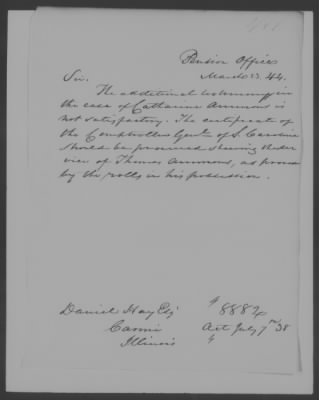 Pension Office
March 23. 44.
Sir.
The additional testimony in
the case of Catharine Ammons is
not satisfactory. The certificate of
the Comptroller Genl. of S. Carolina
should be procured shewing the ser
vice of Thomas Ammons, as proved
by the rolls in his possession.
Daniel Hay Esq
Carmi
Illinois
8882
Act July 7th 38